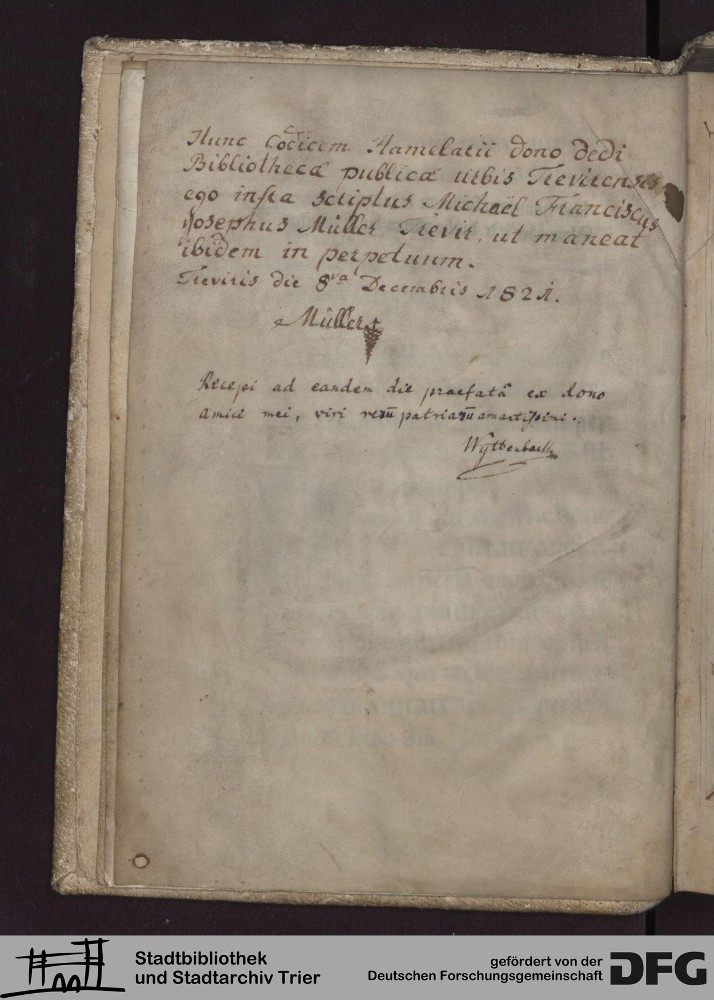 Hunc Codicem Hamelarii dono dedi
Bibliothecæ publicæ urbis Trevirensis
ego infra scriptus Michaël Franciscus
Josephus Müller Trevir, ut maneat
ibidem in perpetuum.
Treviris die 8va Decembris 1821.
Müller
Recepi ad eandem die praefatâ ex dono
amici mei, viri rerū patriarū amantissimi.
Wÿttenbach
Stadtbibliothek
und Stadtarchiv Trier
gefördert von der
Deutschen Forschungsgemeinschaft
DFG